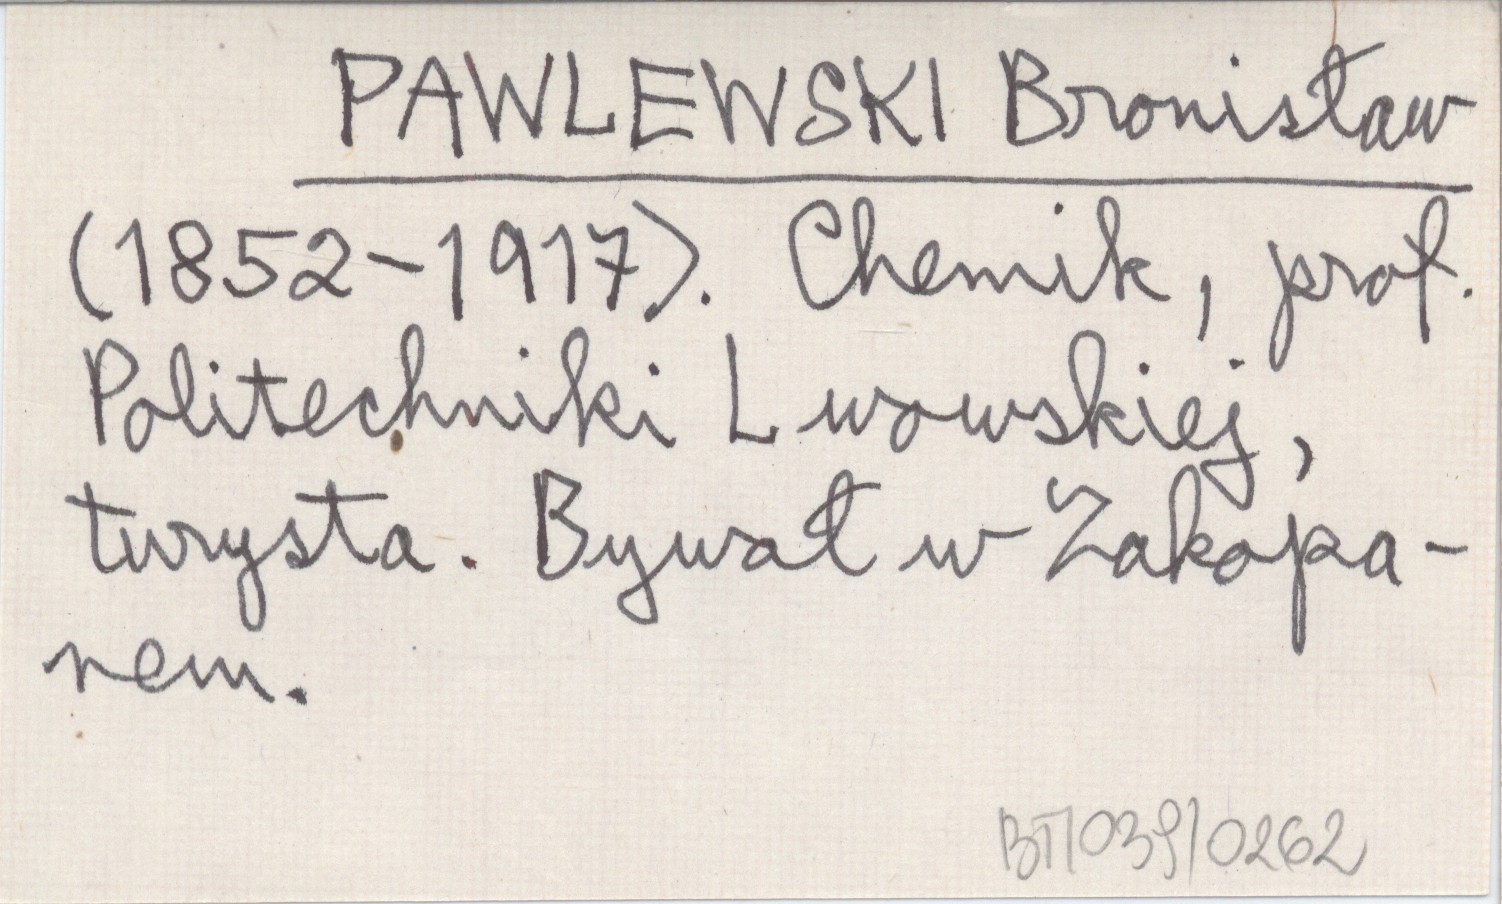 PAWLEWSKI Bronisław
(1852-1917). Chemik, prof.
Politechniki Lwowskiej,
turysta. Bywał w Zakopa-
nem.
BT/039/0262